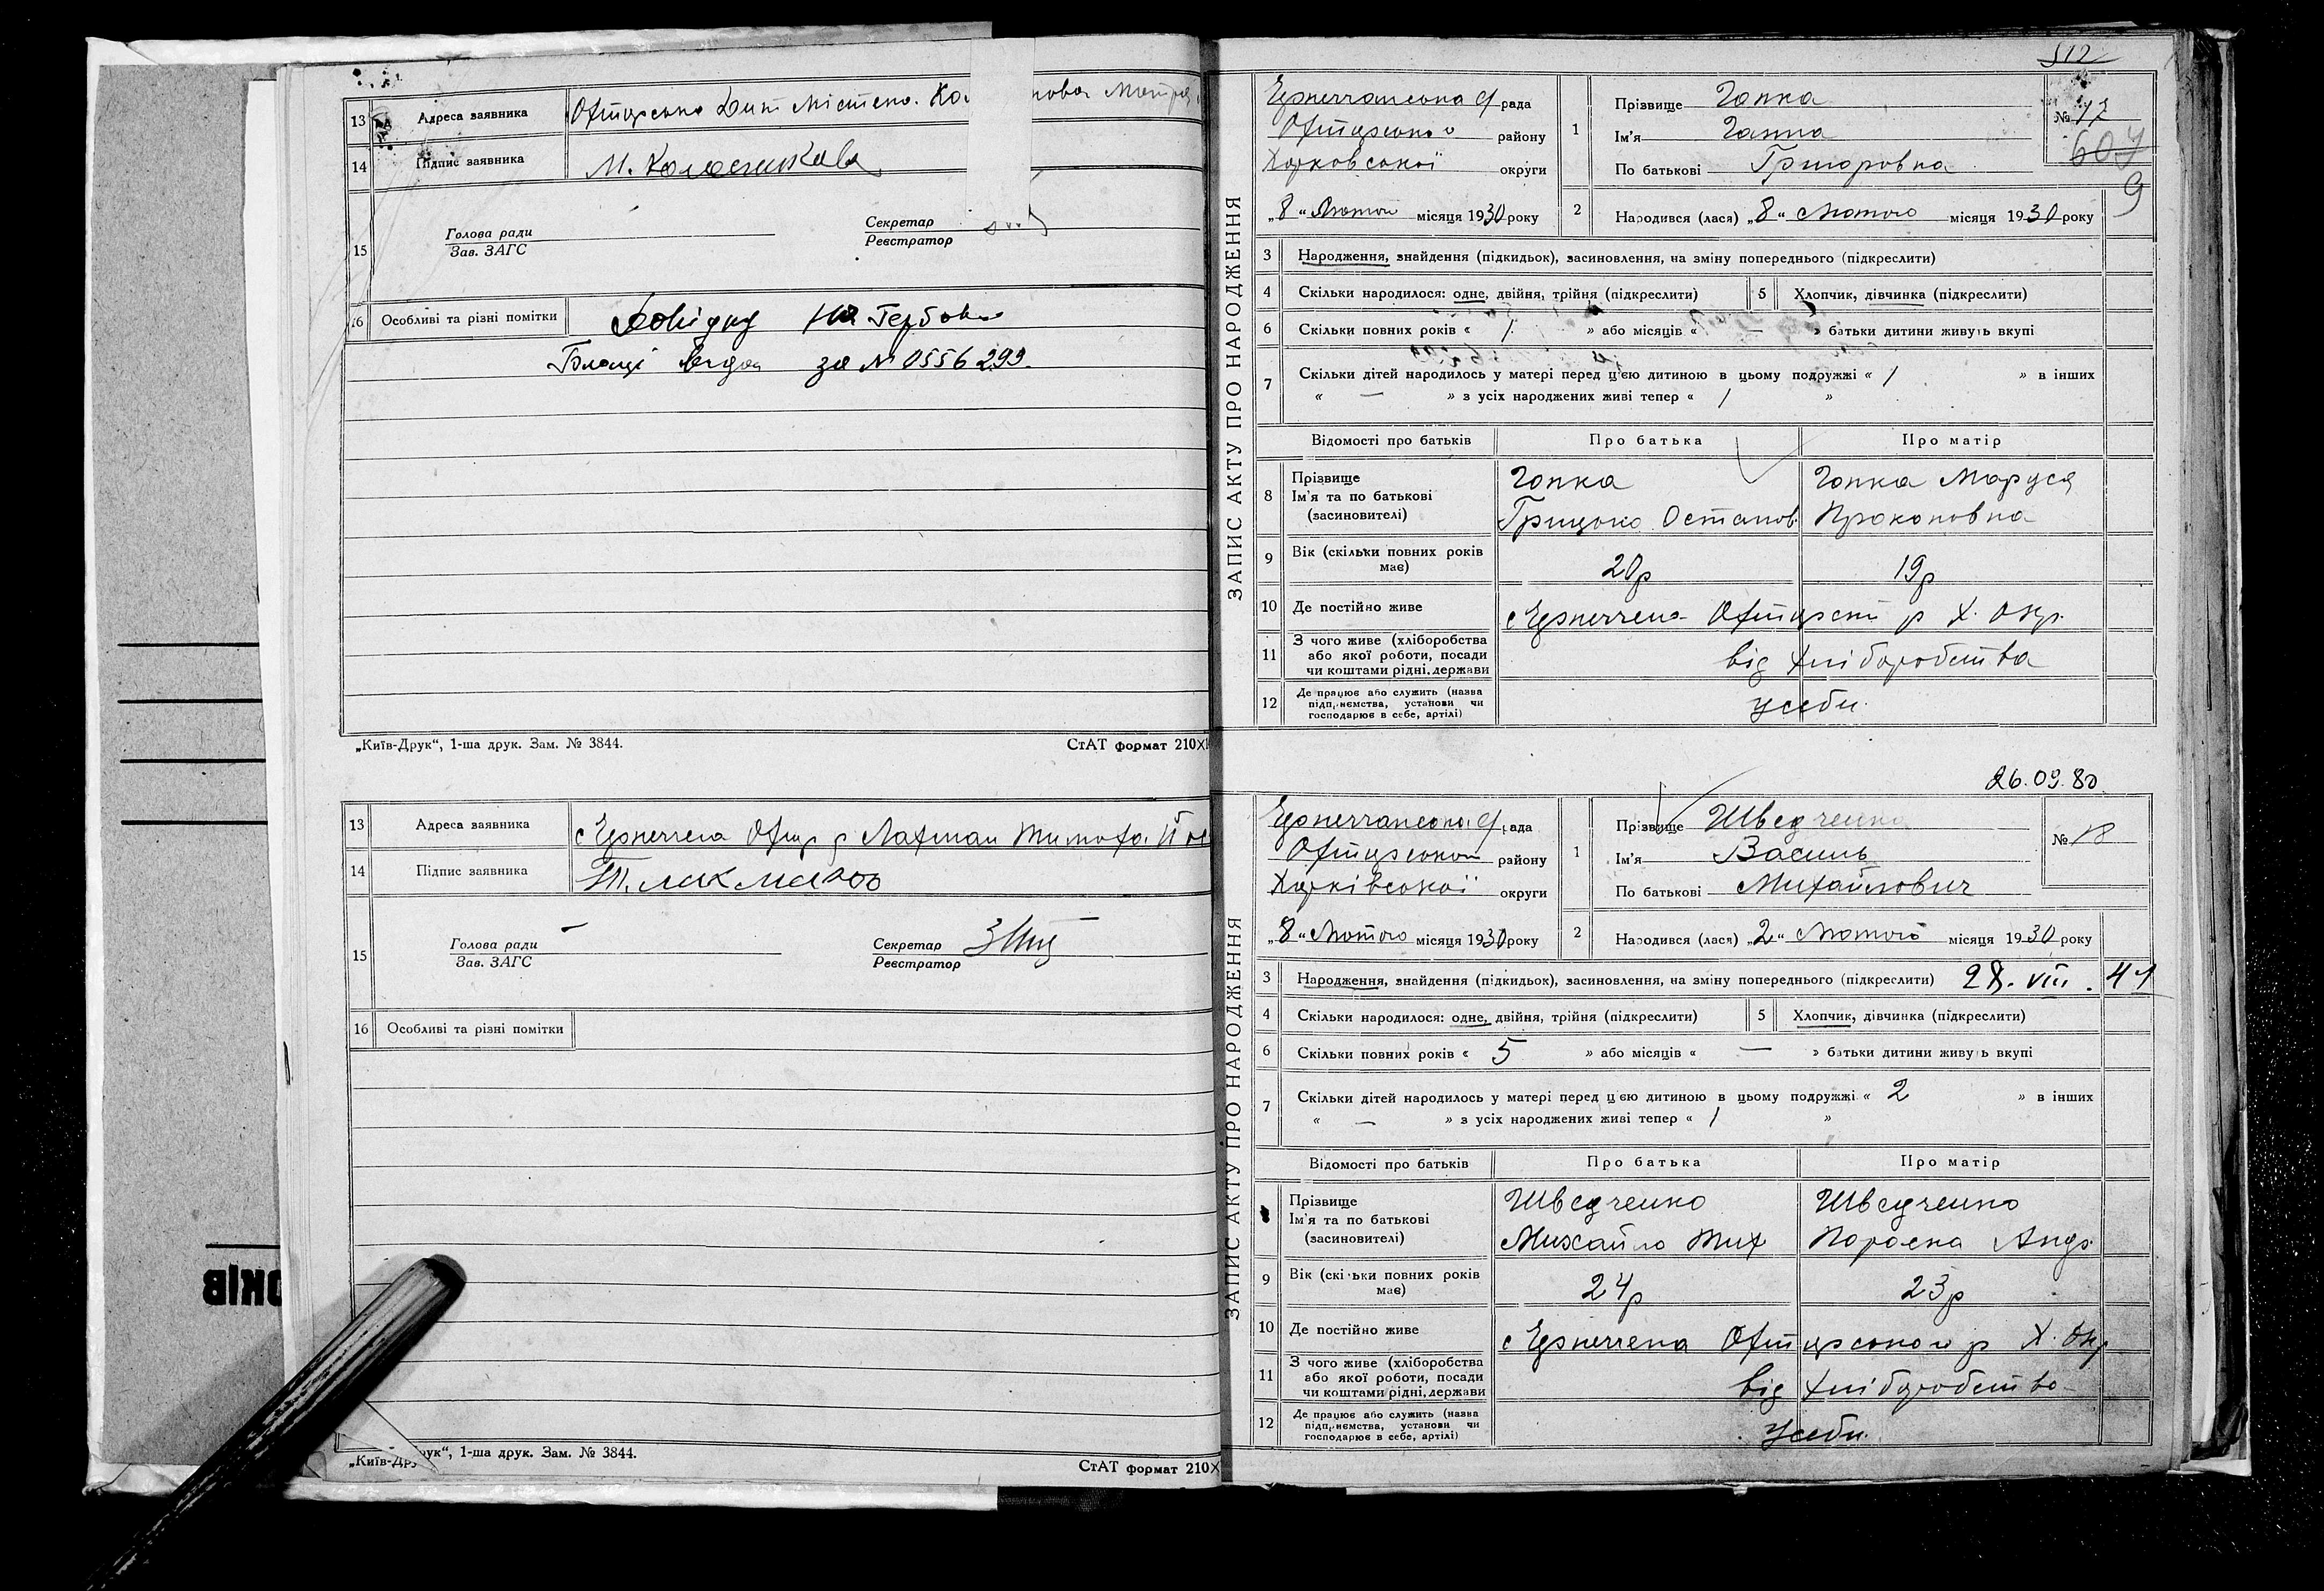 13 Адреса заявника Охтирська Дит Містечк. Ко
14 Підпис заявника М. Колесникова
15 Голова ради Секретар
Зав. ЗАГС Реєстратор
16 Особливі та різні помітки Довідку на Гербов
бланці видан за № 0556299.
„Київ-Друк“, 1-ша друк. Зам. № 3844. СтАТ формат 210×
13 Адреса заявника Охтир р Лахман Тимоф.
14 Підпис заявника
15 Голова ради Секретар
Зав. ЗАГС Реєстратор
16 Особливі та різні помітки
„Київ-Др рук“, 1-ша друк. Зам. № 3844. СтАТ формат 210×
512
ЗАПИС АКТУ ПРО НАРОДЖЕННЯ
рада
Охтирського району
Харковської округи
„8“ Лютого місяця 1930 року
1 Прізвище Гопка
Ім'я Ганна
По батькові Григоровна
№ 17
607
9
2 Народився (лася) „8“ Лютого місяця 1930 року
3 Народження, знайдення (підкидьок), засиновлення, на зміну попереднього (підкреслити)
4 Скільки народилося: одне, двійня, трійня (підкреслити) 5 Хлопчик, дівчинка (підкреслити)
6 Скільки повних років « 1 » або місяців « — » батьки дитини живуть вкупі
7 Скільки дітей народилось у матері перед цією дитиною в цьому подружжі « 1 » в інших
« — » з усіх народжених живі тепер « 1 »
Відомості про батьків Про батька Про матір
8 Прізвище Гопка Гопка Маруся
Ім'я та по батькові
(засновителі) Грицько Остапов. Прокоповна
9 Вік (скільки повних років має) 20р 19р
10 Де постійно живе с Охтирськ р Х. Окр.
11 З чого живе (хліборобства
або якої роботи, посади від хліборобства
чи коштами рідні, держави
12 Де працює або служить (назва
підприємства, установи чи усебе
господарює в себе, артілі)
26.09.80.
ЗАПИС АКТУ ПРО НАРОДЖЕННЯ
рада
Охтирського району
Харківської округи
„8“ Лютого місяця 1930 року
1 Прізвище Шведченко
Ім'я Василь
По батькові Михайлович
№ 18
2 Народився (лася) „2“ Лютого місяця 1930 року
3 Народження, знайдення (підкидьок), засиновлення, на зміну попереднього (підкреслити) 28. VIII. 41
4 Скільки народилося: одне, двійня, трійня (підкреслити) 5 Хлопчик, дівчинка (підкреслити)
6 Скільки повних років « 5 » або місяців « — » батьки дитини живуть вкупі
7 Скільки дітей народилось у матері перед цією дитиною в цьому подружжі « 2 » в інших
« — » з усіх народжених живі тепер « 1 »
Відомості про батьків Про батька Про матір
Прізвище Шведченко Шведченко
Ім'я та по батькові
(засиновителі) Михайло Тих Параска Андр.
9 Вік (скільки повних років має) 24р 23р
10 Де постійно живе с Охтирського р Х. Окр
11 З чого живе (хліборобства
або якої роботи, посади від хліборобства
чи коштами рідні, держави
12 Де працює або служить (назва
підприємства, установи чи Усебе.
господарює в себе, артілі)